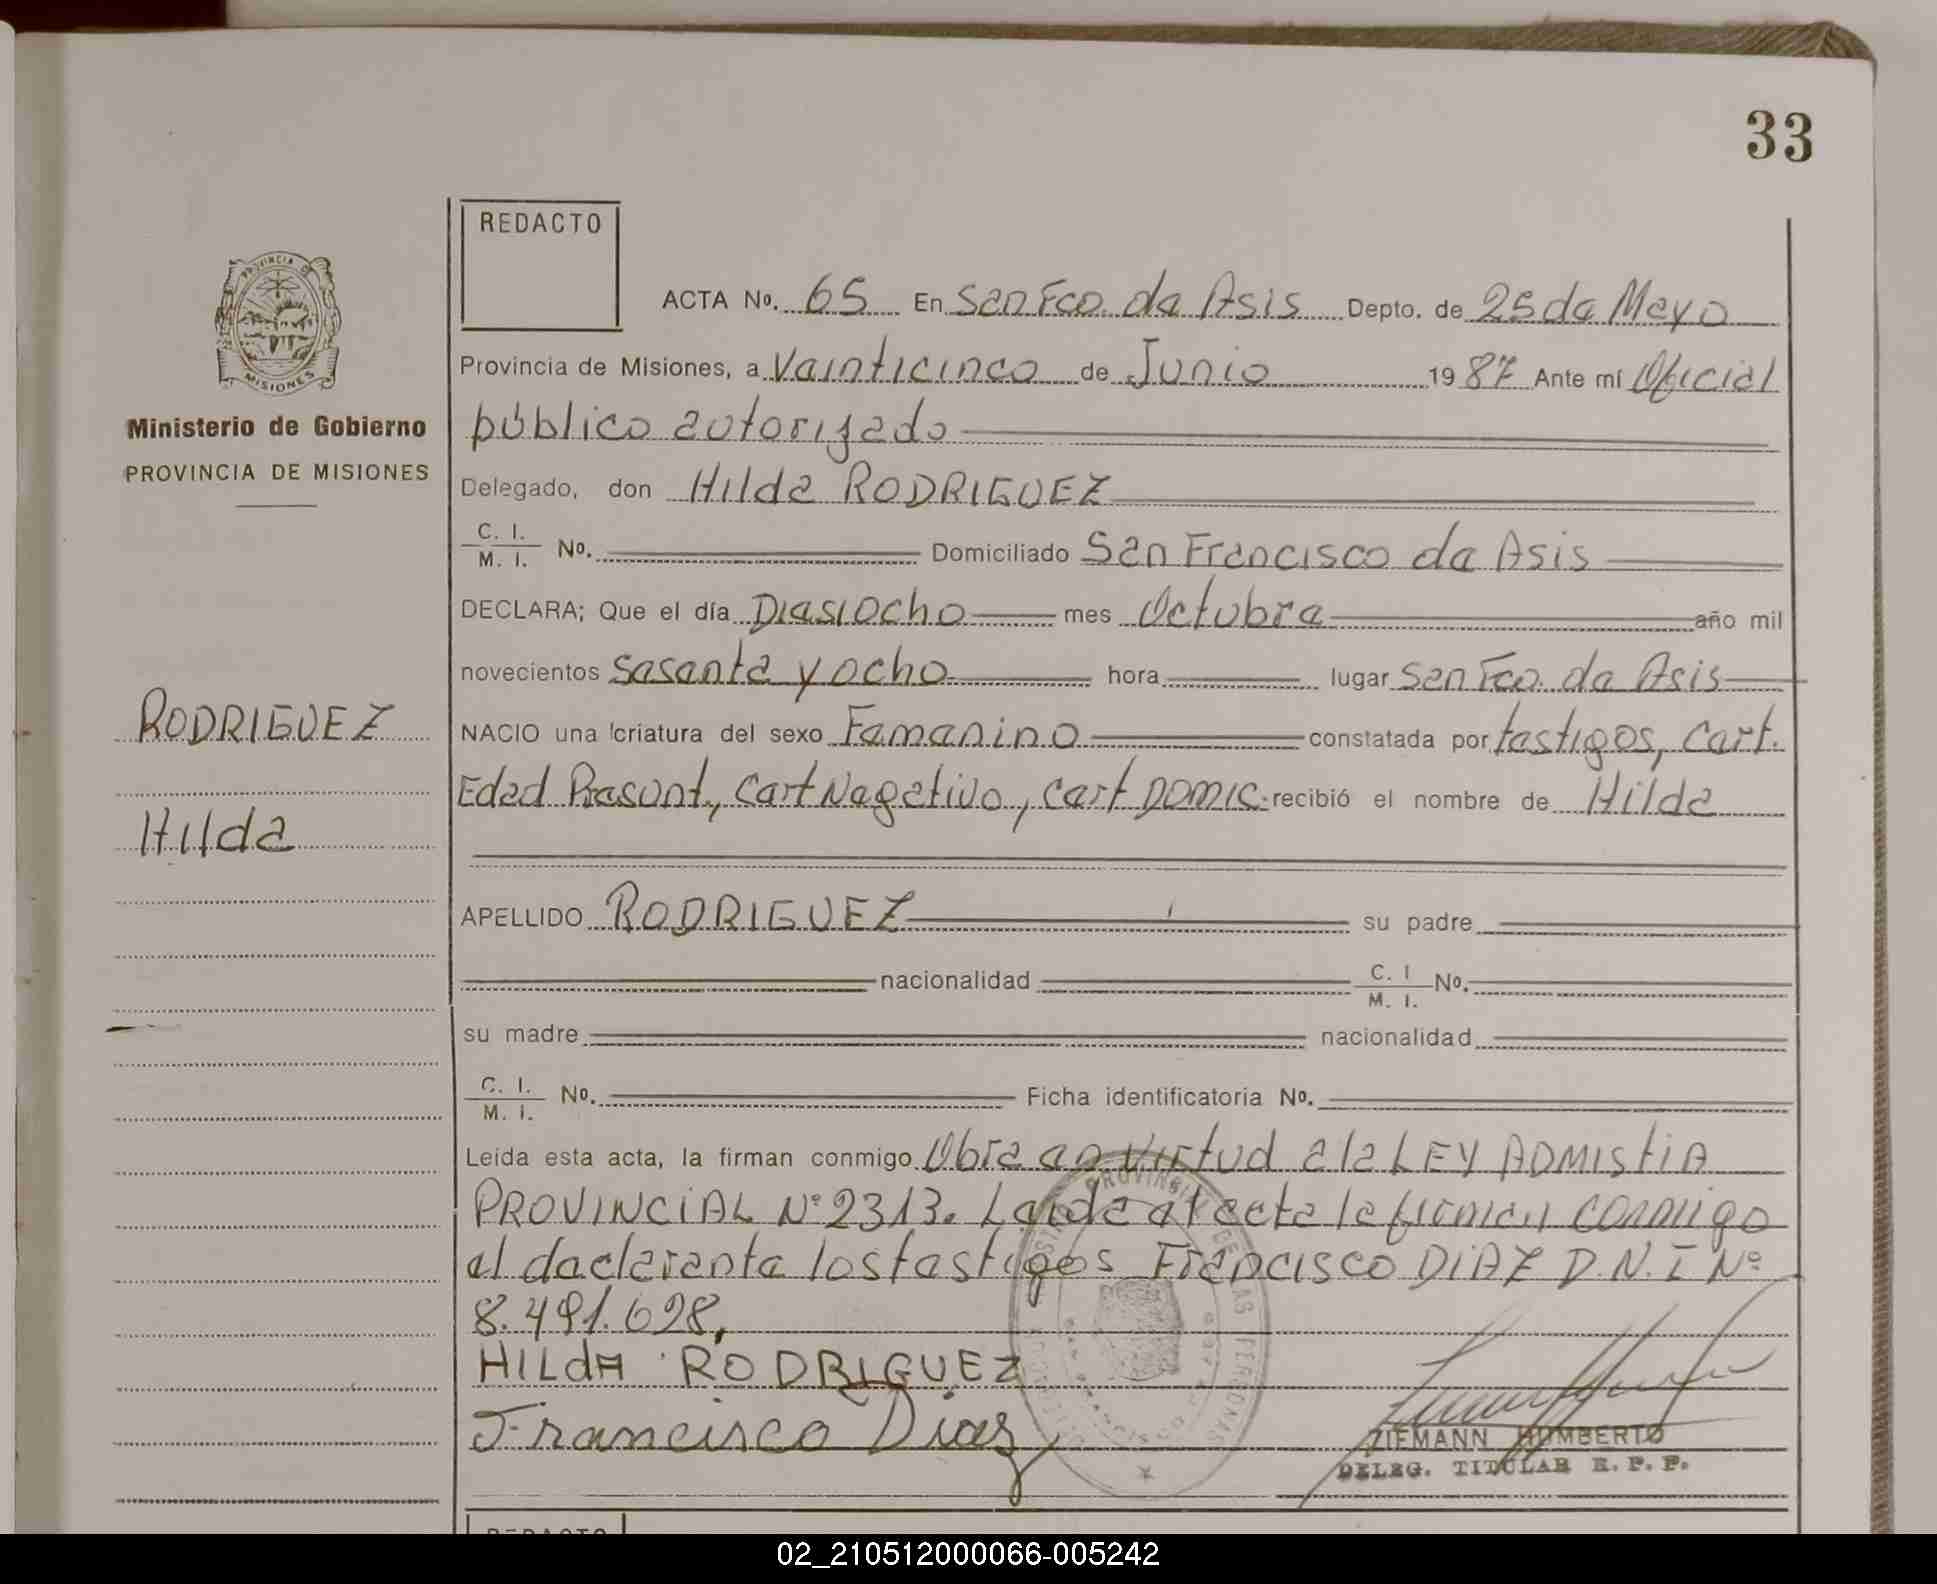 33
REDACTO
ACTA Nº. 65 En San Fco. de Asis Depto. de 25 de Mayo
Provincia de Misiones, a Veinticinco de Junio 1987 Ante mí Oficial
público autorizado
Ministerio de Gobierno
PROVINCIA DE MISIONES
Delegado, don Hilda RODRIGUEZ
C. I.
M. I. Nº. Domiciliado San Francisco de Asis
DECLARA; Que el día Diesiocho mes Octubre año mil
novecientos sesenta y ocho hora lugar San Fco. de Asis
RODRIGUEZ
NACIO una criatura del sexo Femenino constatada por testigos, Cert.
Edad Presunt., Cert Negativo, Cert DOMIC. recibió el nombre de Hilda
Hilda
APELLIDO RODRIGUEZ su padre
nacionalidad C. I
M. I. Nº.
su madre nacionalidad
C. I.
M. I. Nº. Ficha identificatoria Nº.
Leída esta acta, la firman conmigo Obra en Virtud a la LEY ADMISTIA
PROVINCIAL Nº 2313. Leida el acta la firman conmigo
el declarante los testigos Francisco DIAZ D.N.I Nº
8.491.698,
HILdA RODRIGUEZ
Francisco Diaz
ZIEMANN HUMBERTO
DELEG. TITULAR R. P. P.
REDACTO
02_210512000066-005242